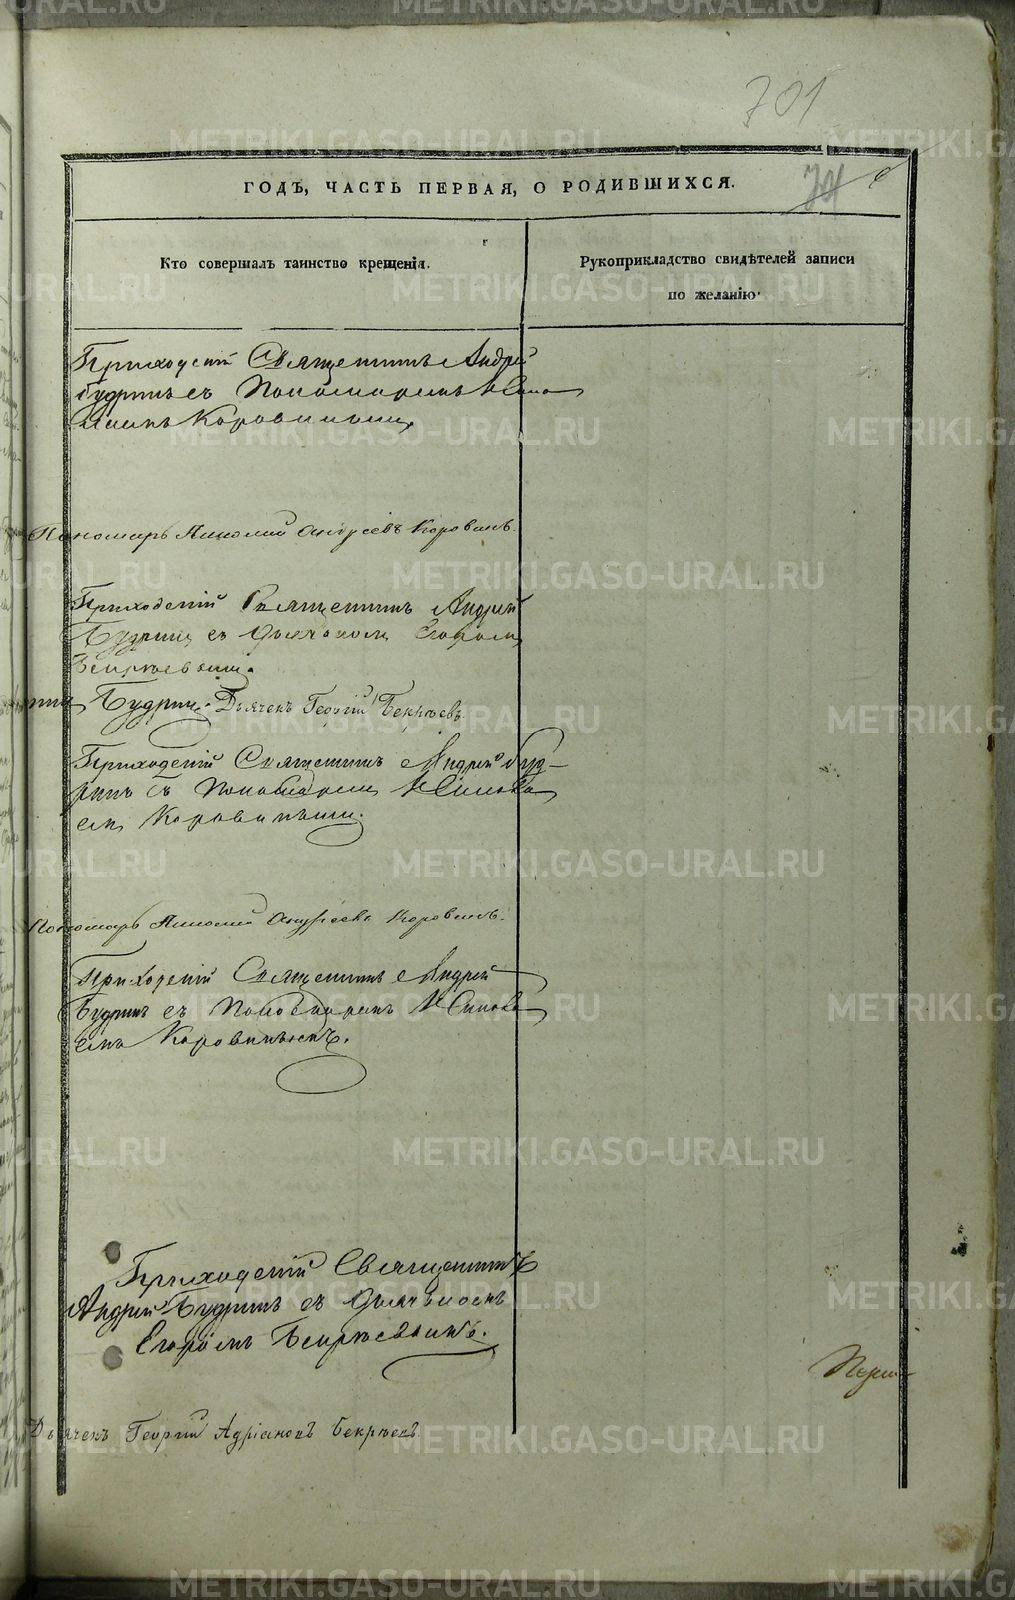 701
ГОДЪ, ЧАСТЬ ПЕРВАЯ, О РОДИВШИХСЯ.
Кто совершалъ таинство крещенія.
Рукоприкладство свидѣтелей записи
по желанію.
Приходскій Священникъ Андрей
Будринъ съ Пономаремъ
Коровинымъ.
Пономарь Андреевъ Коровинъ.
Приходскій Священникъ Андрей
Будринъ съ Дьячкомъ Егоромъ
Бекряевымъ.
Будринъ. Дьячекъ Георгій Бекряевъ
Приходскій Священникъ Андрей Буд-
ринъ съ Пономаремъ Никола
емъ Коровинымъ.
Пономарь Андреевъ Коровинъ.
Приходскій Священникъ Андрей
Будринъ съ Пономаремъ Никола
емъ Коровинымъ.
Приходскій Священникъ
Андрей Будринъ съ Дьячкомъ
Егоромъ Бекряевымъ.
Дьячекъ Георгій Адріановъ Бекряевъ
METRIKI.GASO-URAL.RU